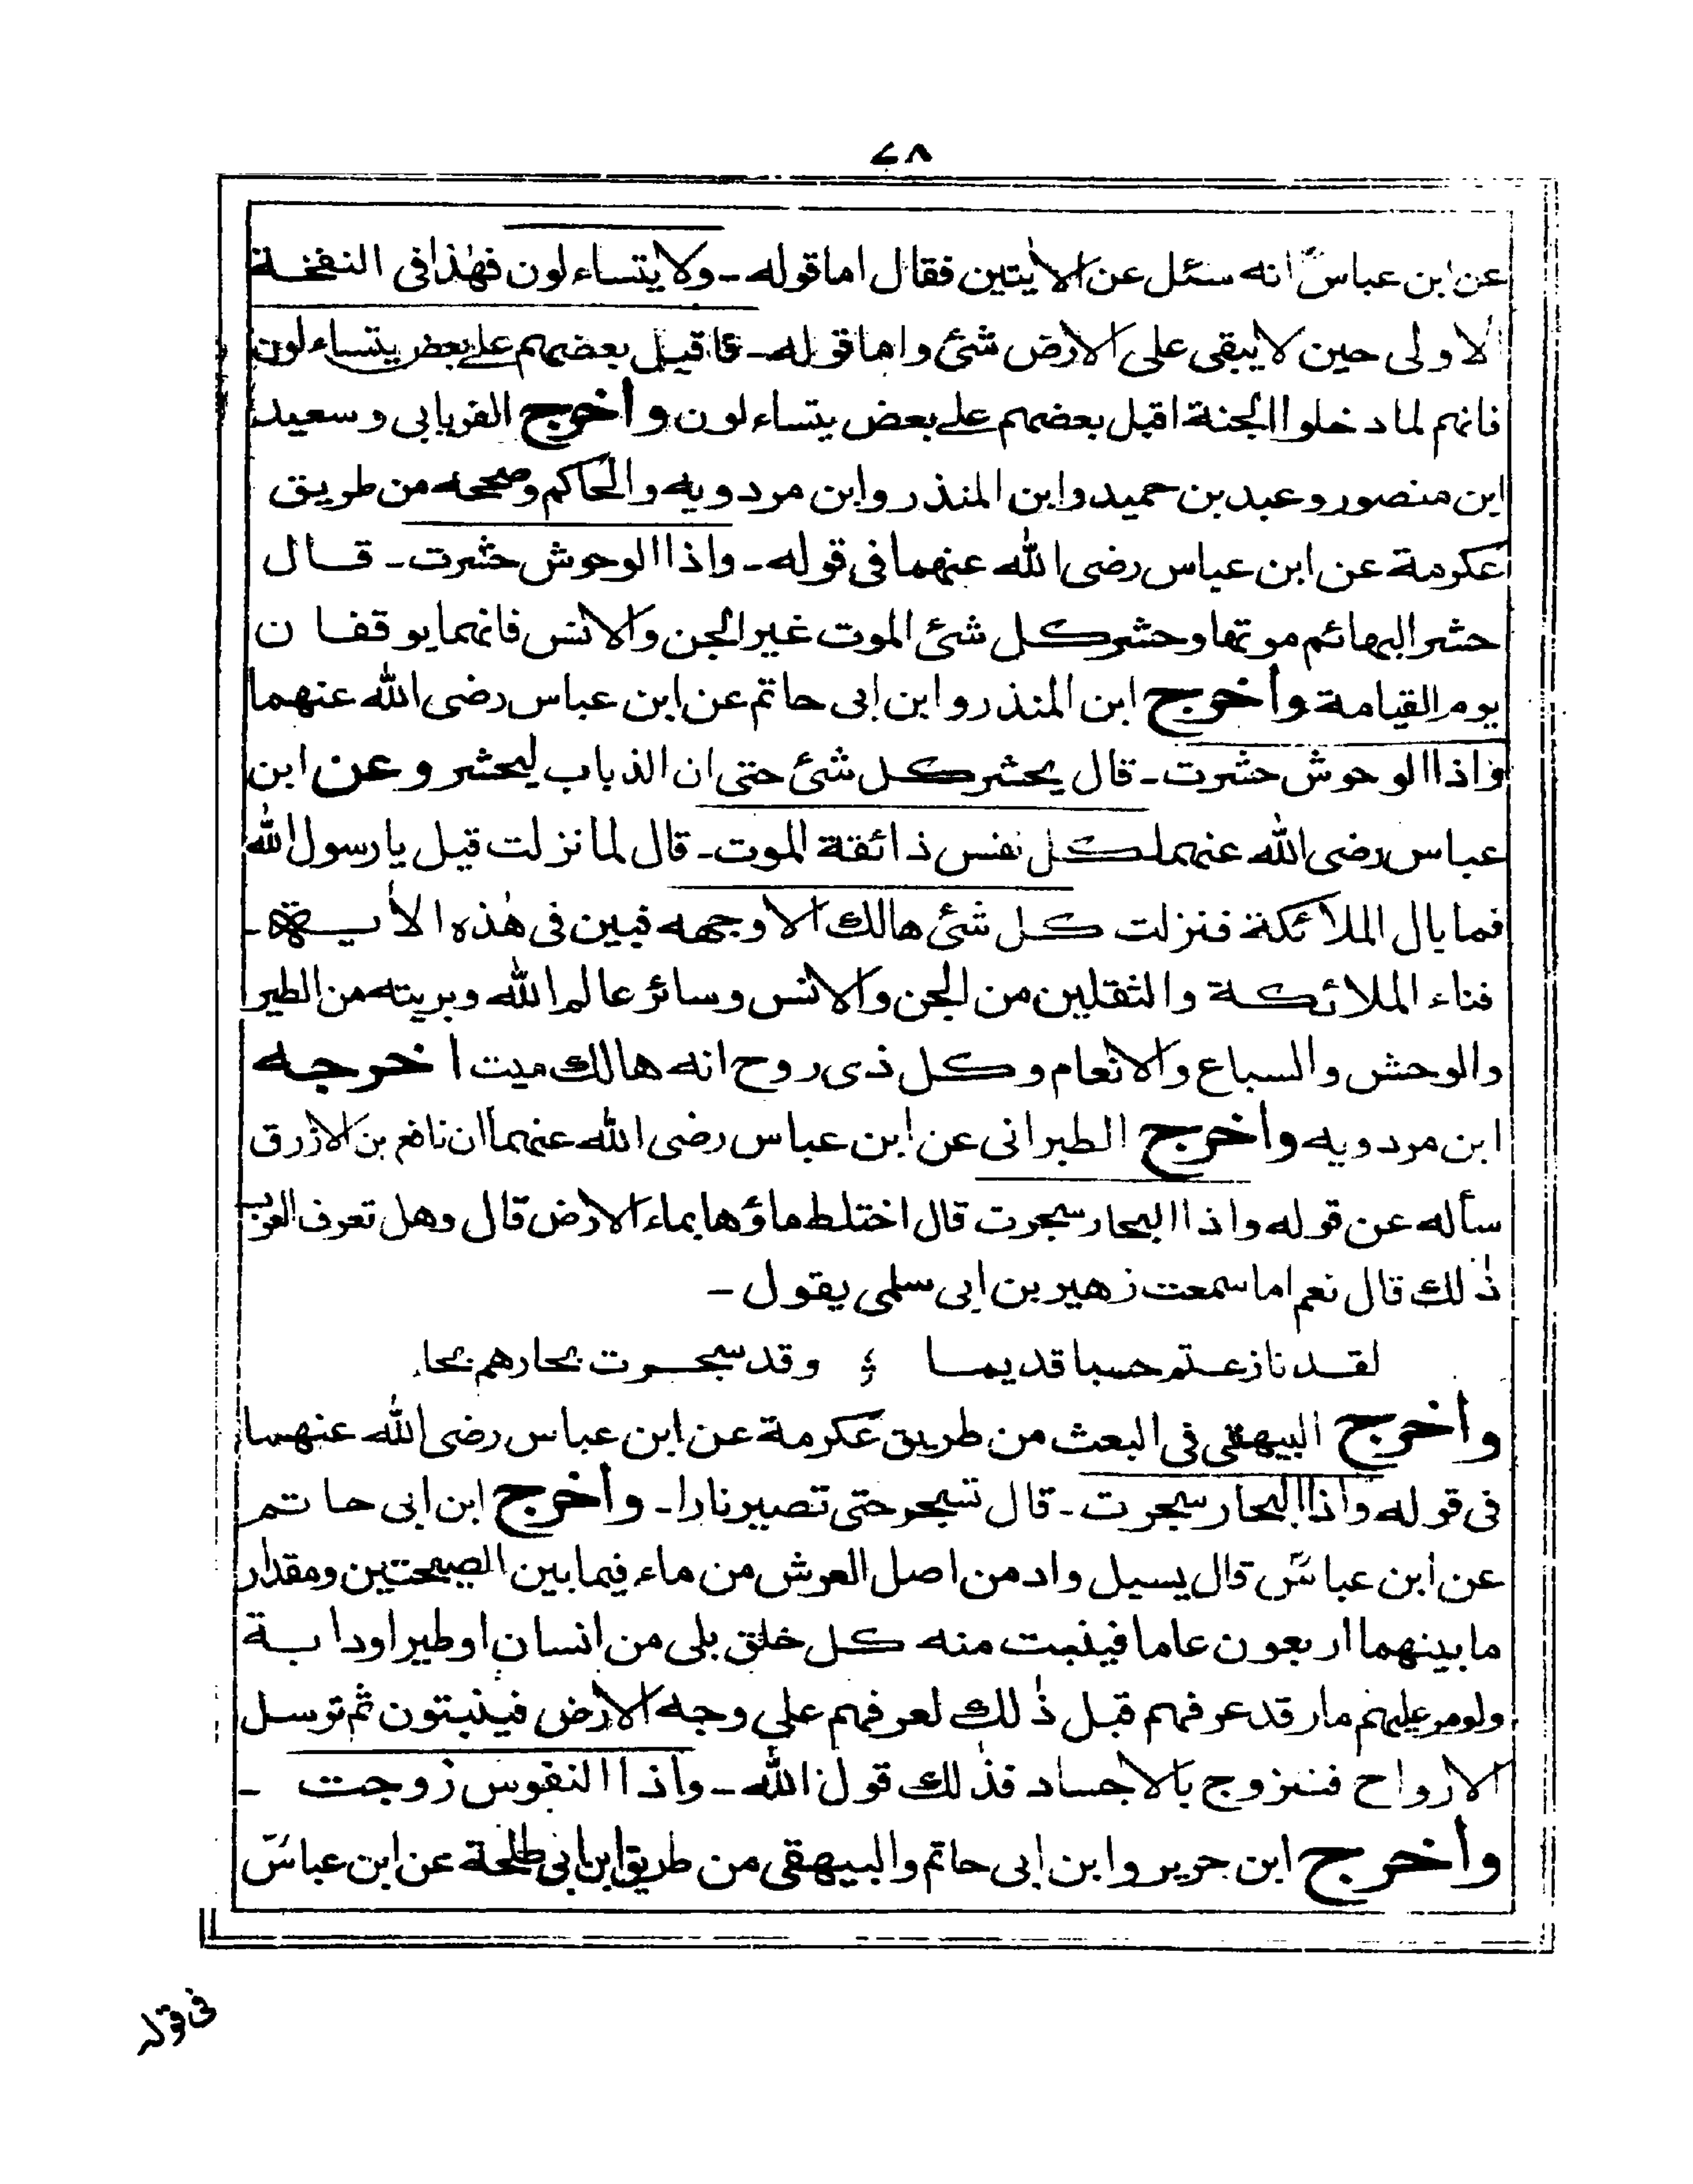 ٤٨
عن ابن عباسؓ انه سئل عن الاٰيتين فقال اما قوله ـ ولا يتساءلون فهٰذا فى النفخة
الاولى حين لا يبقى على الارض شئ واما قوله ـ فاقبل بعضهم على بعض يتساءلون
فانهم لما دخلوا الجنة اقبل بعضهم على بعض يتساءلون وأخرج الفريابى وسعيد
ابن منصور وعبد بن حميد وابن المنذر وابن مردويه والحاكم وصححه من طريق
عكرمة عن ابن عباس رضى الله عنهما فى قوله ـ واذا الوحوش حشرت ـ قال
حشر البهائم موتها وحشر كل شئ الموت غير الجن والانس فانهما يوقفان
يوم القيامة وأخرج ابن المنذر وابن ابى حاتم عن ابن عباس رضى الله عنهما
واذا الوحوش حشرت ـ قال يحشر كل شئ حتى ان الذباب ليحشر وعن ابن
عباس رضى الله عنهما كل نفس ذائقة الموت ـ قال لما نزلت قيل يا رسول الله
فما بال الملائكة فنزلت كل شئ هالك الا وجهه فبين فى هٰذه الأية ـ
فناء الملائكة والثقلين من الجن والانس وسائر عالم الله وبريته من الطير
والوحش والسباع والانعام وكل ذى روح انه هالك ميت اخرجه
ابن مردويه وأخرج الطبرانى عن ابن عباس رضى الله عنهما ان نافع بن الازرق
سأله عن قوله واذا البحار سجرت قال اختلط ماؤها بماء الارض قال وهل تعرف العرب
ذٰلك قال نعم اما سمعت زهير بن ابى سلمى يقول ـ
لقد نازعتم حسبا قديما وقد سجرت بحارهم بحا
وأخرج البيهقى فى البعث من طريق عكرمة عن ابن عباس رضى الله عنهما
فى قوله واذا البحار سجرت ـ قال تسجر حتى تصير نارا ـ وأخرج ابن ابى حاتم
عن ابن عباسؓ قال يسيل واد من اصل العرش من ماء فيما بين الصيحتين ومقدار
ما بينهما اربعون عاما فينبت منه كل خلق بلى من انسان او طير او دابة
ولو مر عليهم مار قد عرفهم قبل ذٰلك لعرفهم على وجه الارض فينبتون ثم ترسل
الارواح فتزوج بالاجساد فذٰلك قول الله ـ واذا النفوس زوجت ـ
وأخرج ابن جرير وابن ابى حاتم والبيهقى من طريق ابن ابى طلحة عن ابن عباسؓ
فى قوله